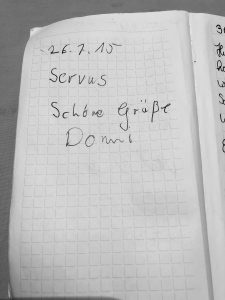 26.7.15
Servus
Schöne Grüße
Domi